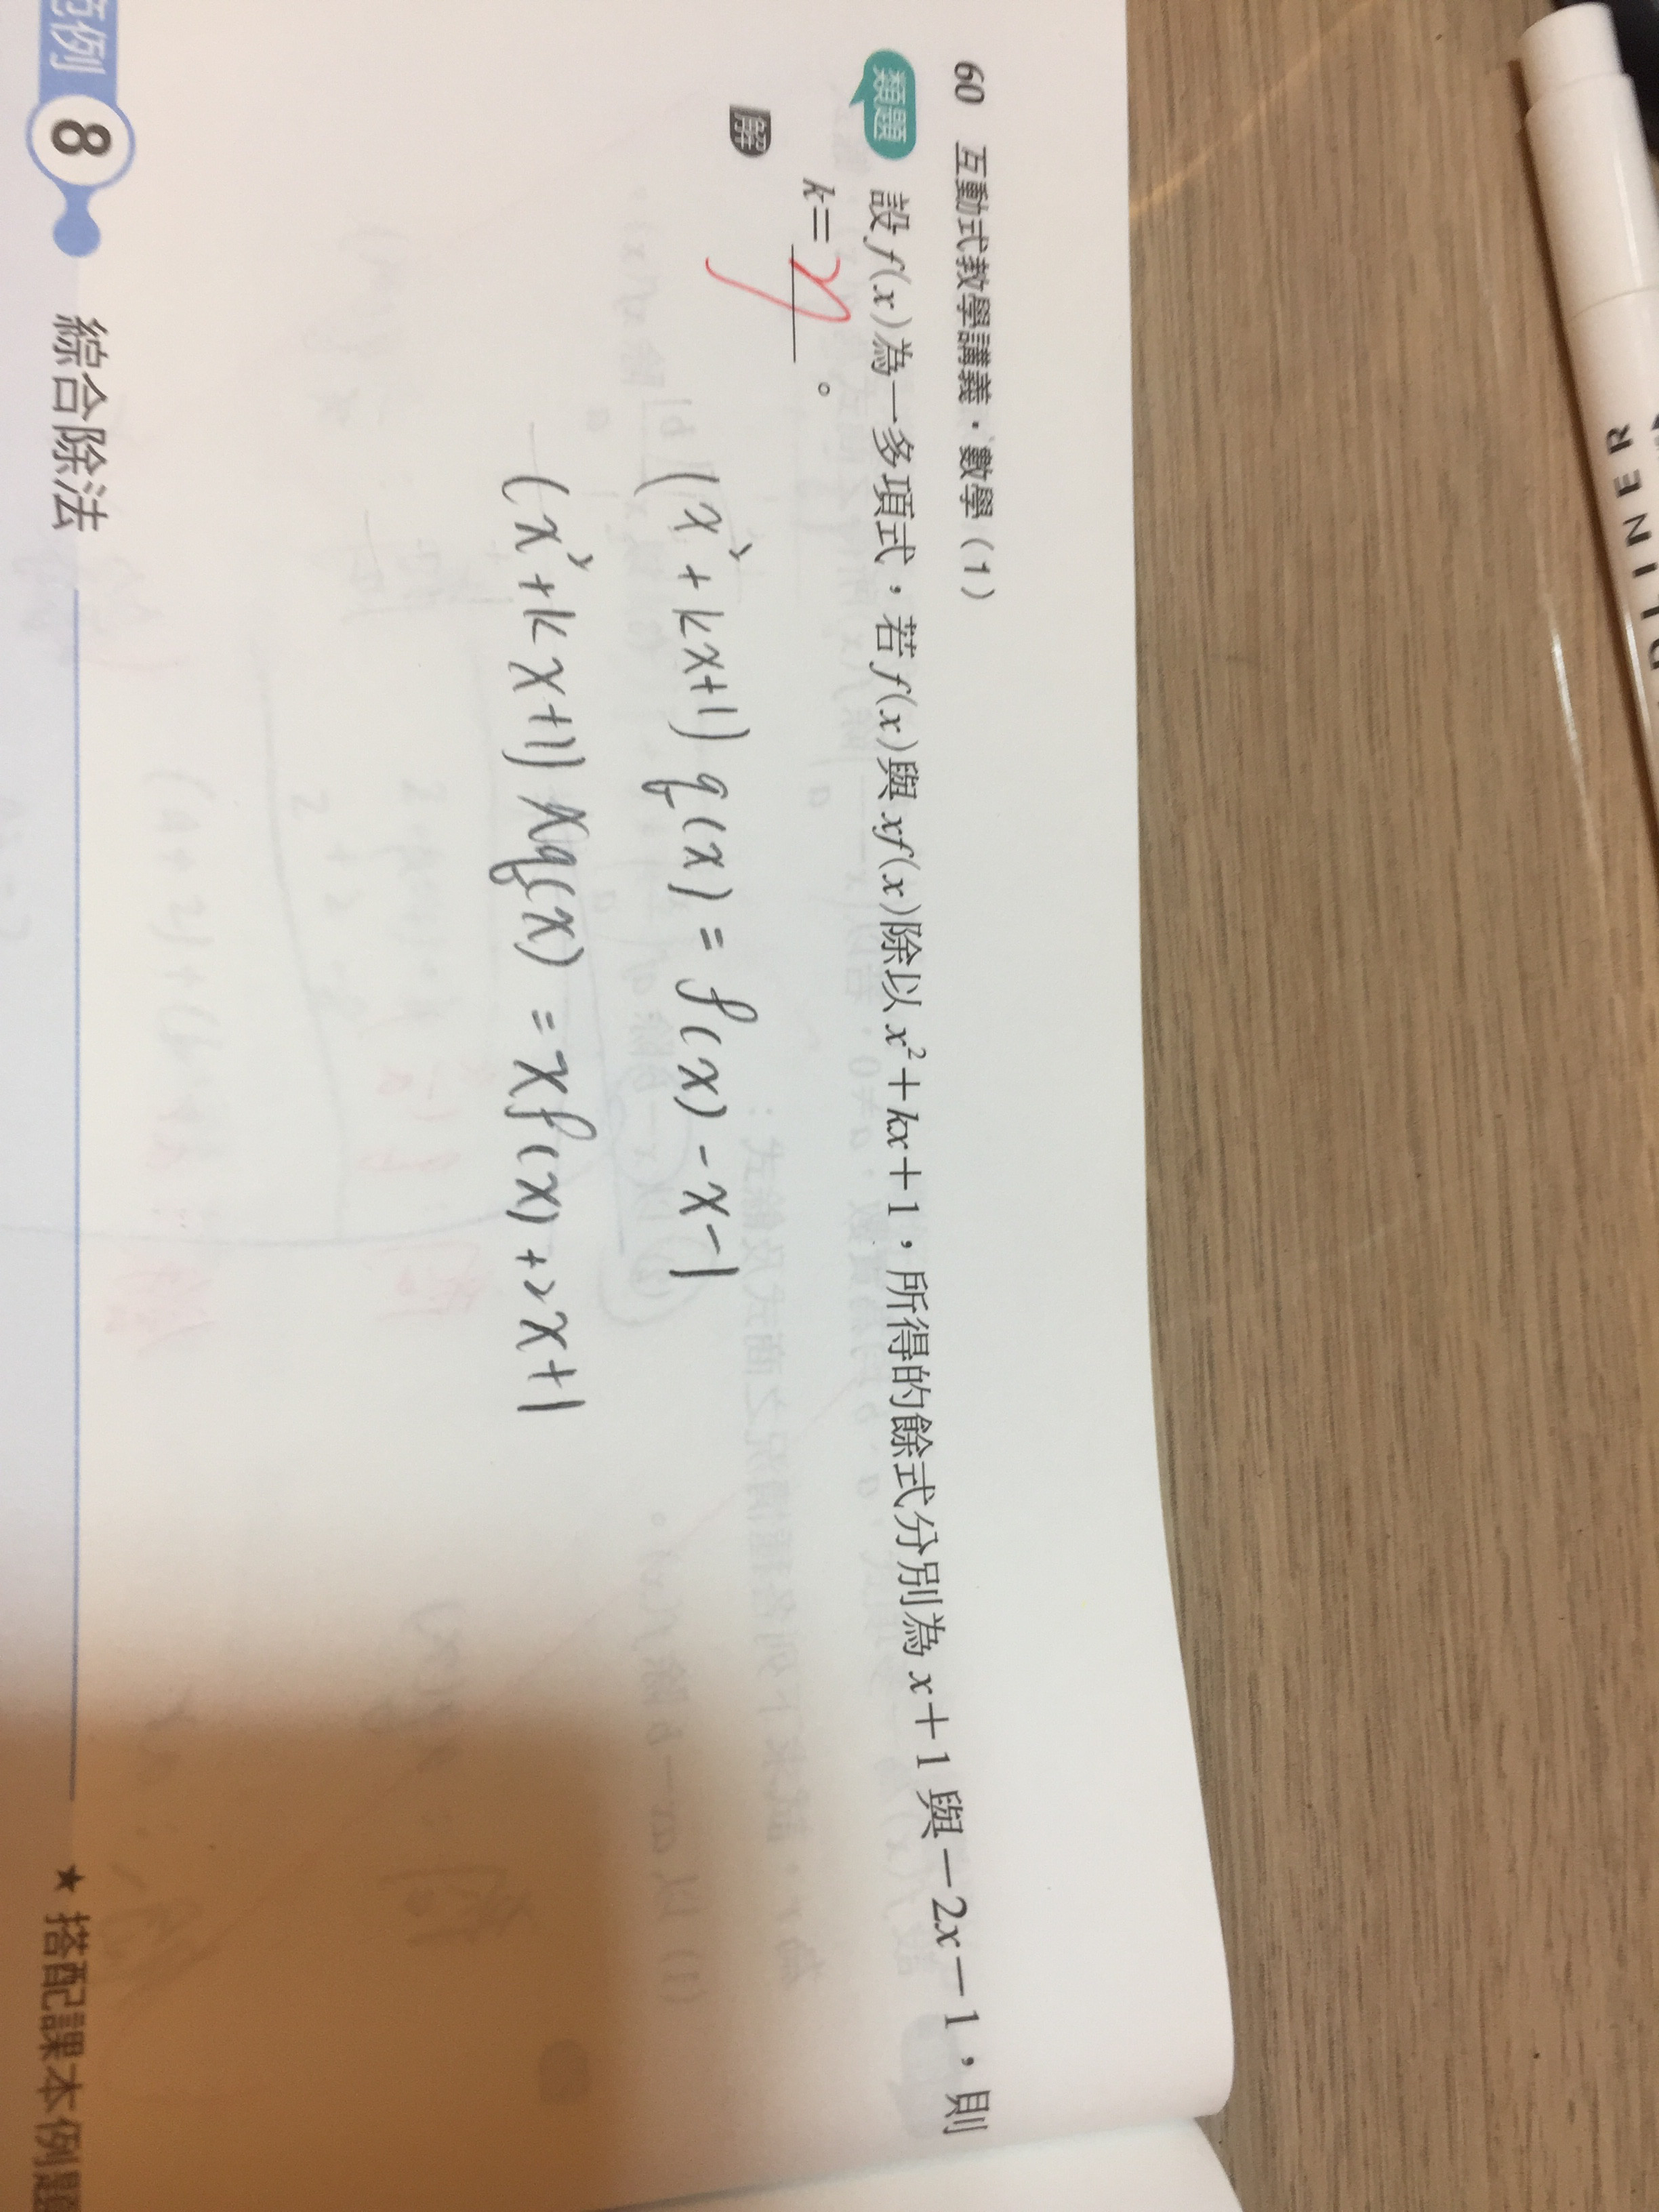 60 互動式教學講義・數學（1）
類題 設 f(x) 為一多項式，若 f(x) 與 xf(x) 除以 x²＋kx＋1，所得的餘式分別為 x＋1 與 －2x－1，則
k＝
。
解
(x²+kx+1) q(x) = f(x) -x-1
(x²+kx+1) xq(x) = xf(x) +2x+1
範例 8 綜合除法
★ 搭配課本例題
LINER